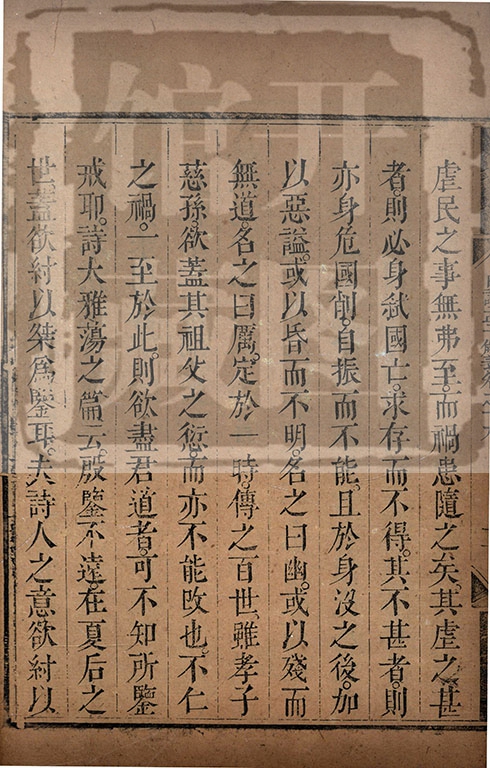 虐民之事無弗至而禍患隨之矣其虐之甚
者則必身弑國亡求存而不得其不甚者則
亦身危國削自振而不能且於身沒之後加
以惡謚或以昏而不明名之曰幽或以殘而
無道名之曰厲定於一時傳之百世雖孝子
慈孫欲蓋其祖父之愆而亦不能改也不仁
之禍一至於此則欲盡君道者可不知所鑒
戒耶詩大雅蕩之篇云殷鑒不遠在夏后之
世蓋欲紂以桀爲鑒耳夫詩人之意欲紂以